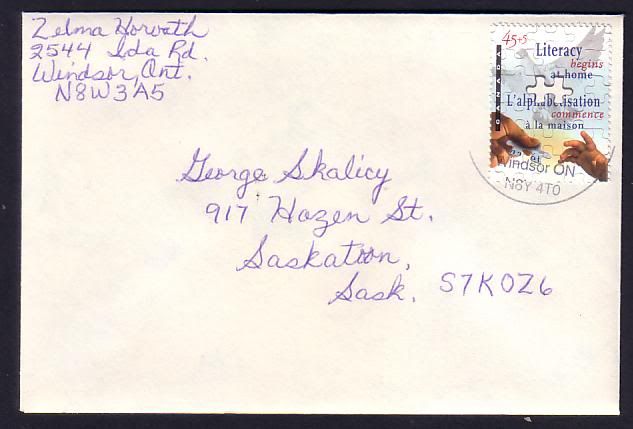 Zelma Horvath
2544 Ida Rd.
Windsor, Ont.
N8W3A5
45+5
CANADA
Literacy
begins
at home
L'alphabétisation
commence
à la maison
Windsor ON
N8Y 4T0
George Skalicy
917 Hazen St.
Saskatoon,
Sask. S7K0Z6